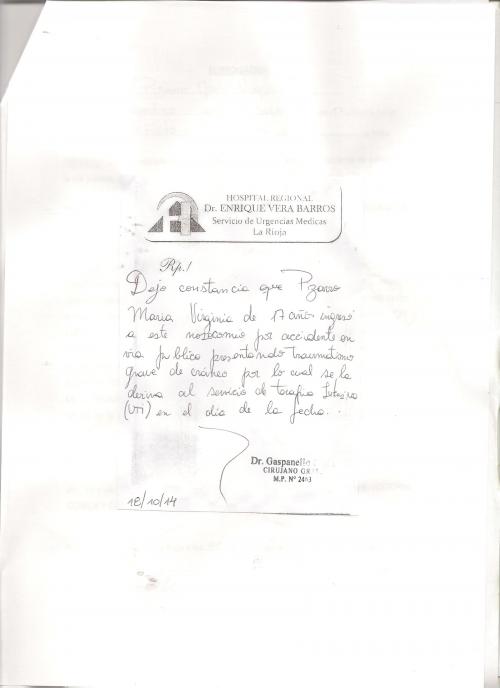 HOSPITAL REGIONAL
Dr. ENRIQUE VERA BARROS
Servicio de Urgencias Medicas
La Rioja
Rp./
Dejo constancia que Pizarro
Maria Virginia de 17 años ingresó
a este nosocomio por accidente en
via publica presentando traumatismo
grave de cráneo por lo cual se la
deriva al servicio de terapia Intensiva
(UTI) en el dia de la fecha.
Dr. Gaspanello
CIRUJANO
M.P. N° 2463
18/10/14